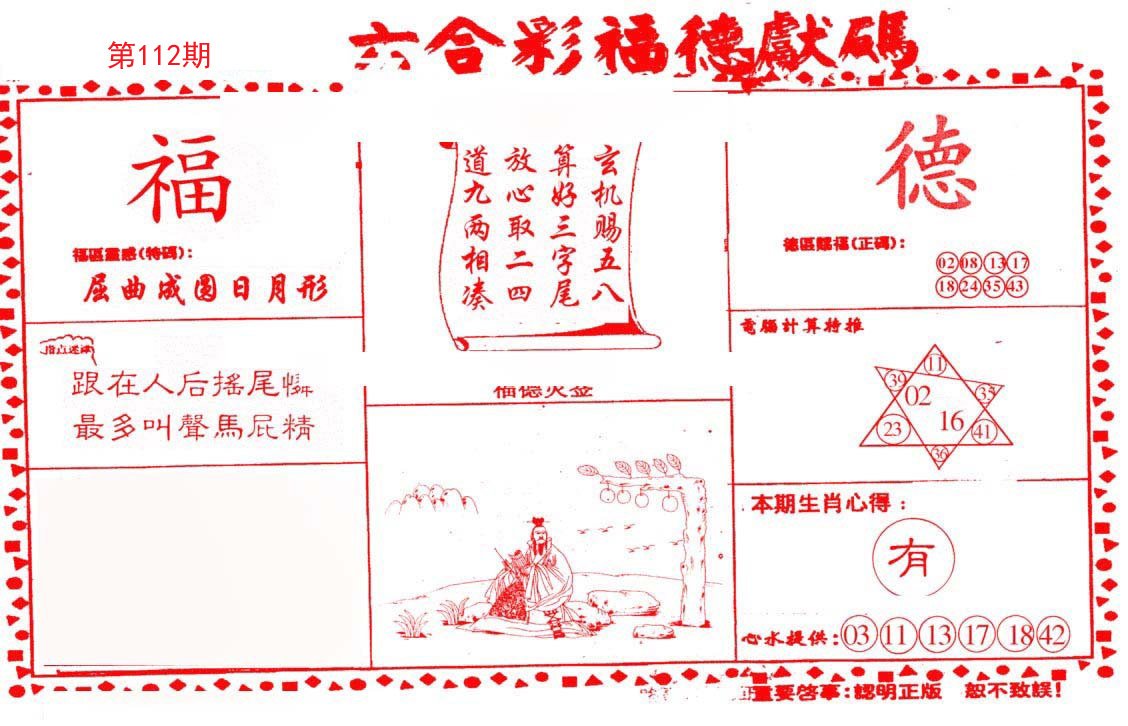 第112期
六合彩福德獻碼
福
福區靈感(特碼):
屈曲成圓日月形
指点迷津
跟在人后搖尾憐
最多叫聲馬屁精
玄机赐五八
算好三字尾
放心取二四
道九两相凑
福德灵签
德
德區賜福(正碼):
02 08 13 17
18 24 35 43
電腦計算特推
11
39 35
02
16
23 41
36
本期生肖心得:
有
心水提供: 03 11 13 17 18 42
重要啓事:認明正版 恕不致誤!